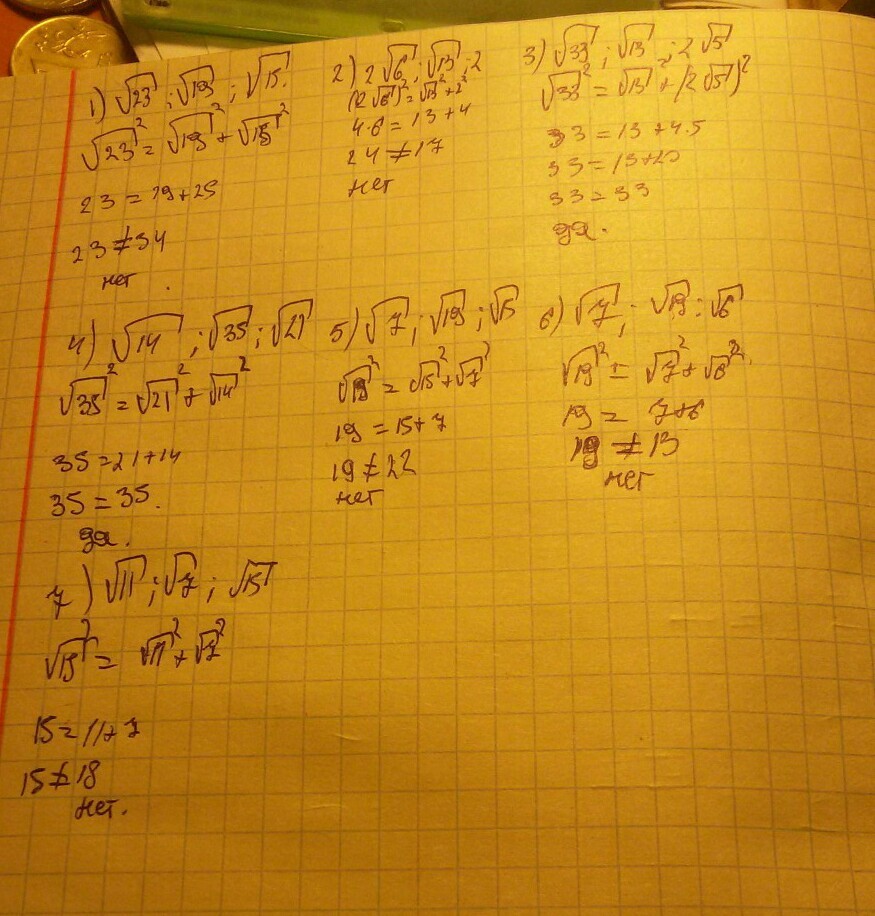 1) √23 ; √19 ; √15.
√23² = √19² + √15²
23 = 19+25
23 ≠ 34
нет.
2) 2√6 ; √13 ; 2
(2√6)² = √13² + 2²
4·6 = 13+4
24 ≠ 17
нет
3) √33 ; √13 ; 2√5
√33² = √13² + (2√5)²
33 = 13+4·5
33 = 13+20
33 = 33
да.
4) √14 ; √35 ; √21
√35² = √21² + √14²
35 = 21+14
35 = 35.
да.
5) √7 ; √19 ; √15
√19² = √15² + √7²
19 = 15+7
19 ≠ 22
нет
6) √7 ; √19 ; √6
√19² = √7² + √6²
19 = 7+6
19 ≠ 13
нет
7) √11 ; √7 ; √15
√15² = √11² + √7²
15 = 11+7
15 ≠ 18
нет.